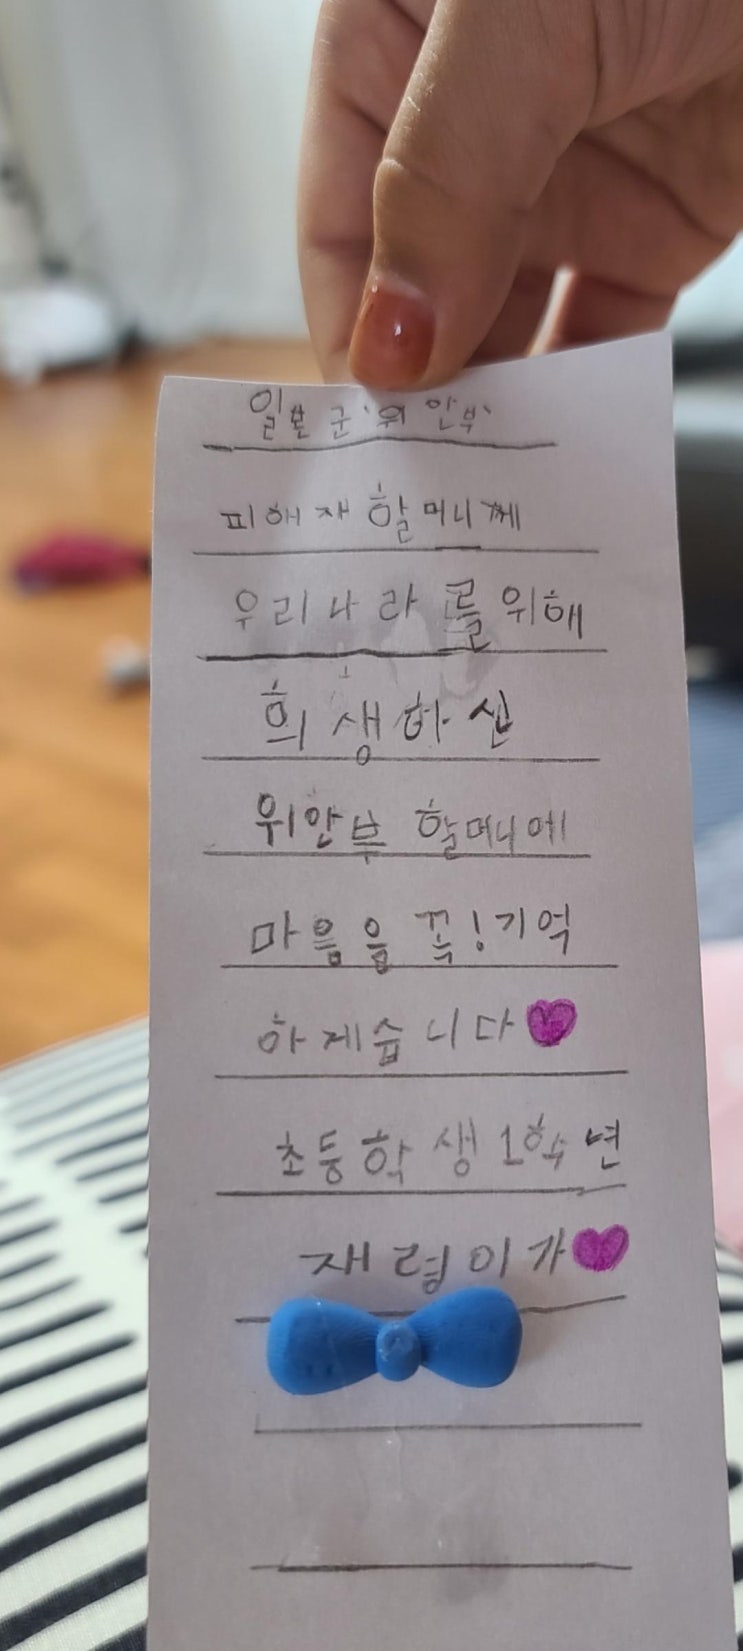 일본군'위안부'
피해자 할머니께
우리나라를 위해
희생하신
위안부 할머니에
마음을 꼭! 기억
하게습니다
초등학생 1학년
재령이가